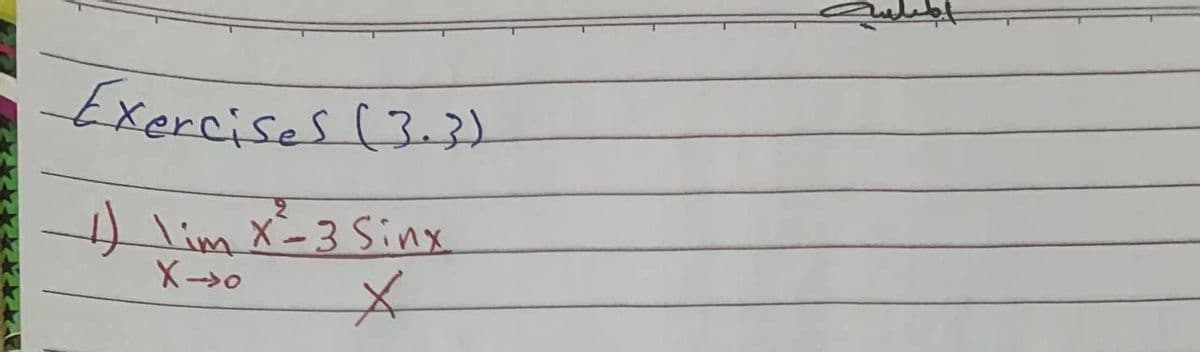 Exercises (3.3)
1) lim x²-3 Sinx
x→0 x